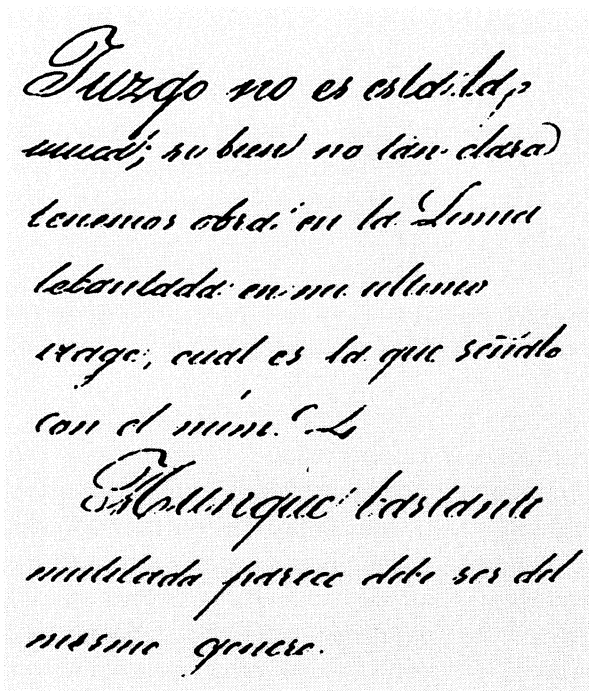 Juzgo no es esta ila,
unica; su buen no tan clara
tenemos otra en la Lamina
letanlada en mi ultimo
viage, cual es la que señalo
con el núm.
Aunque bastante
mutilada parece debe ser del
mismo genero.